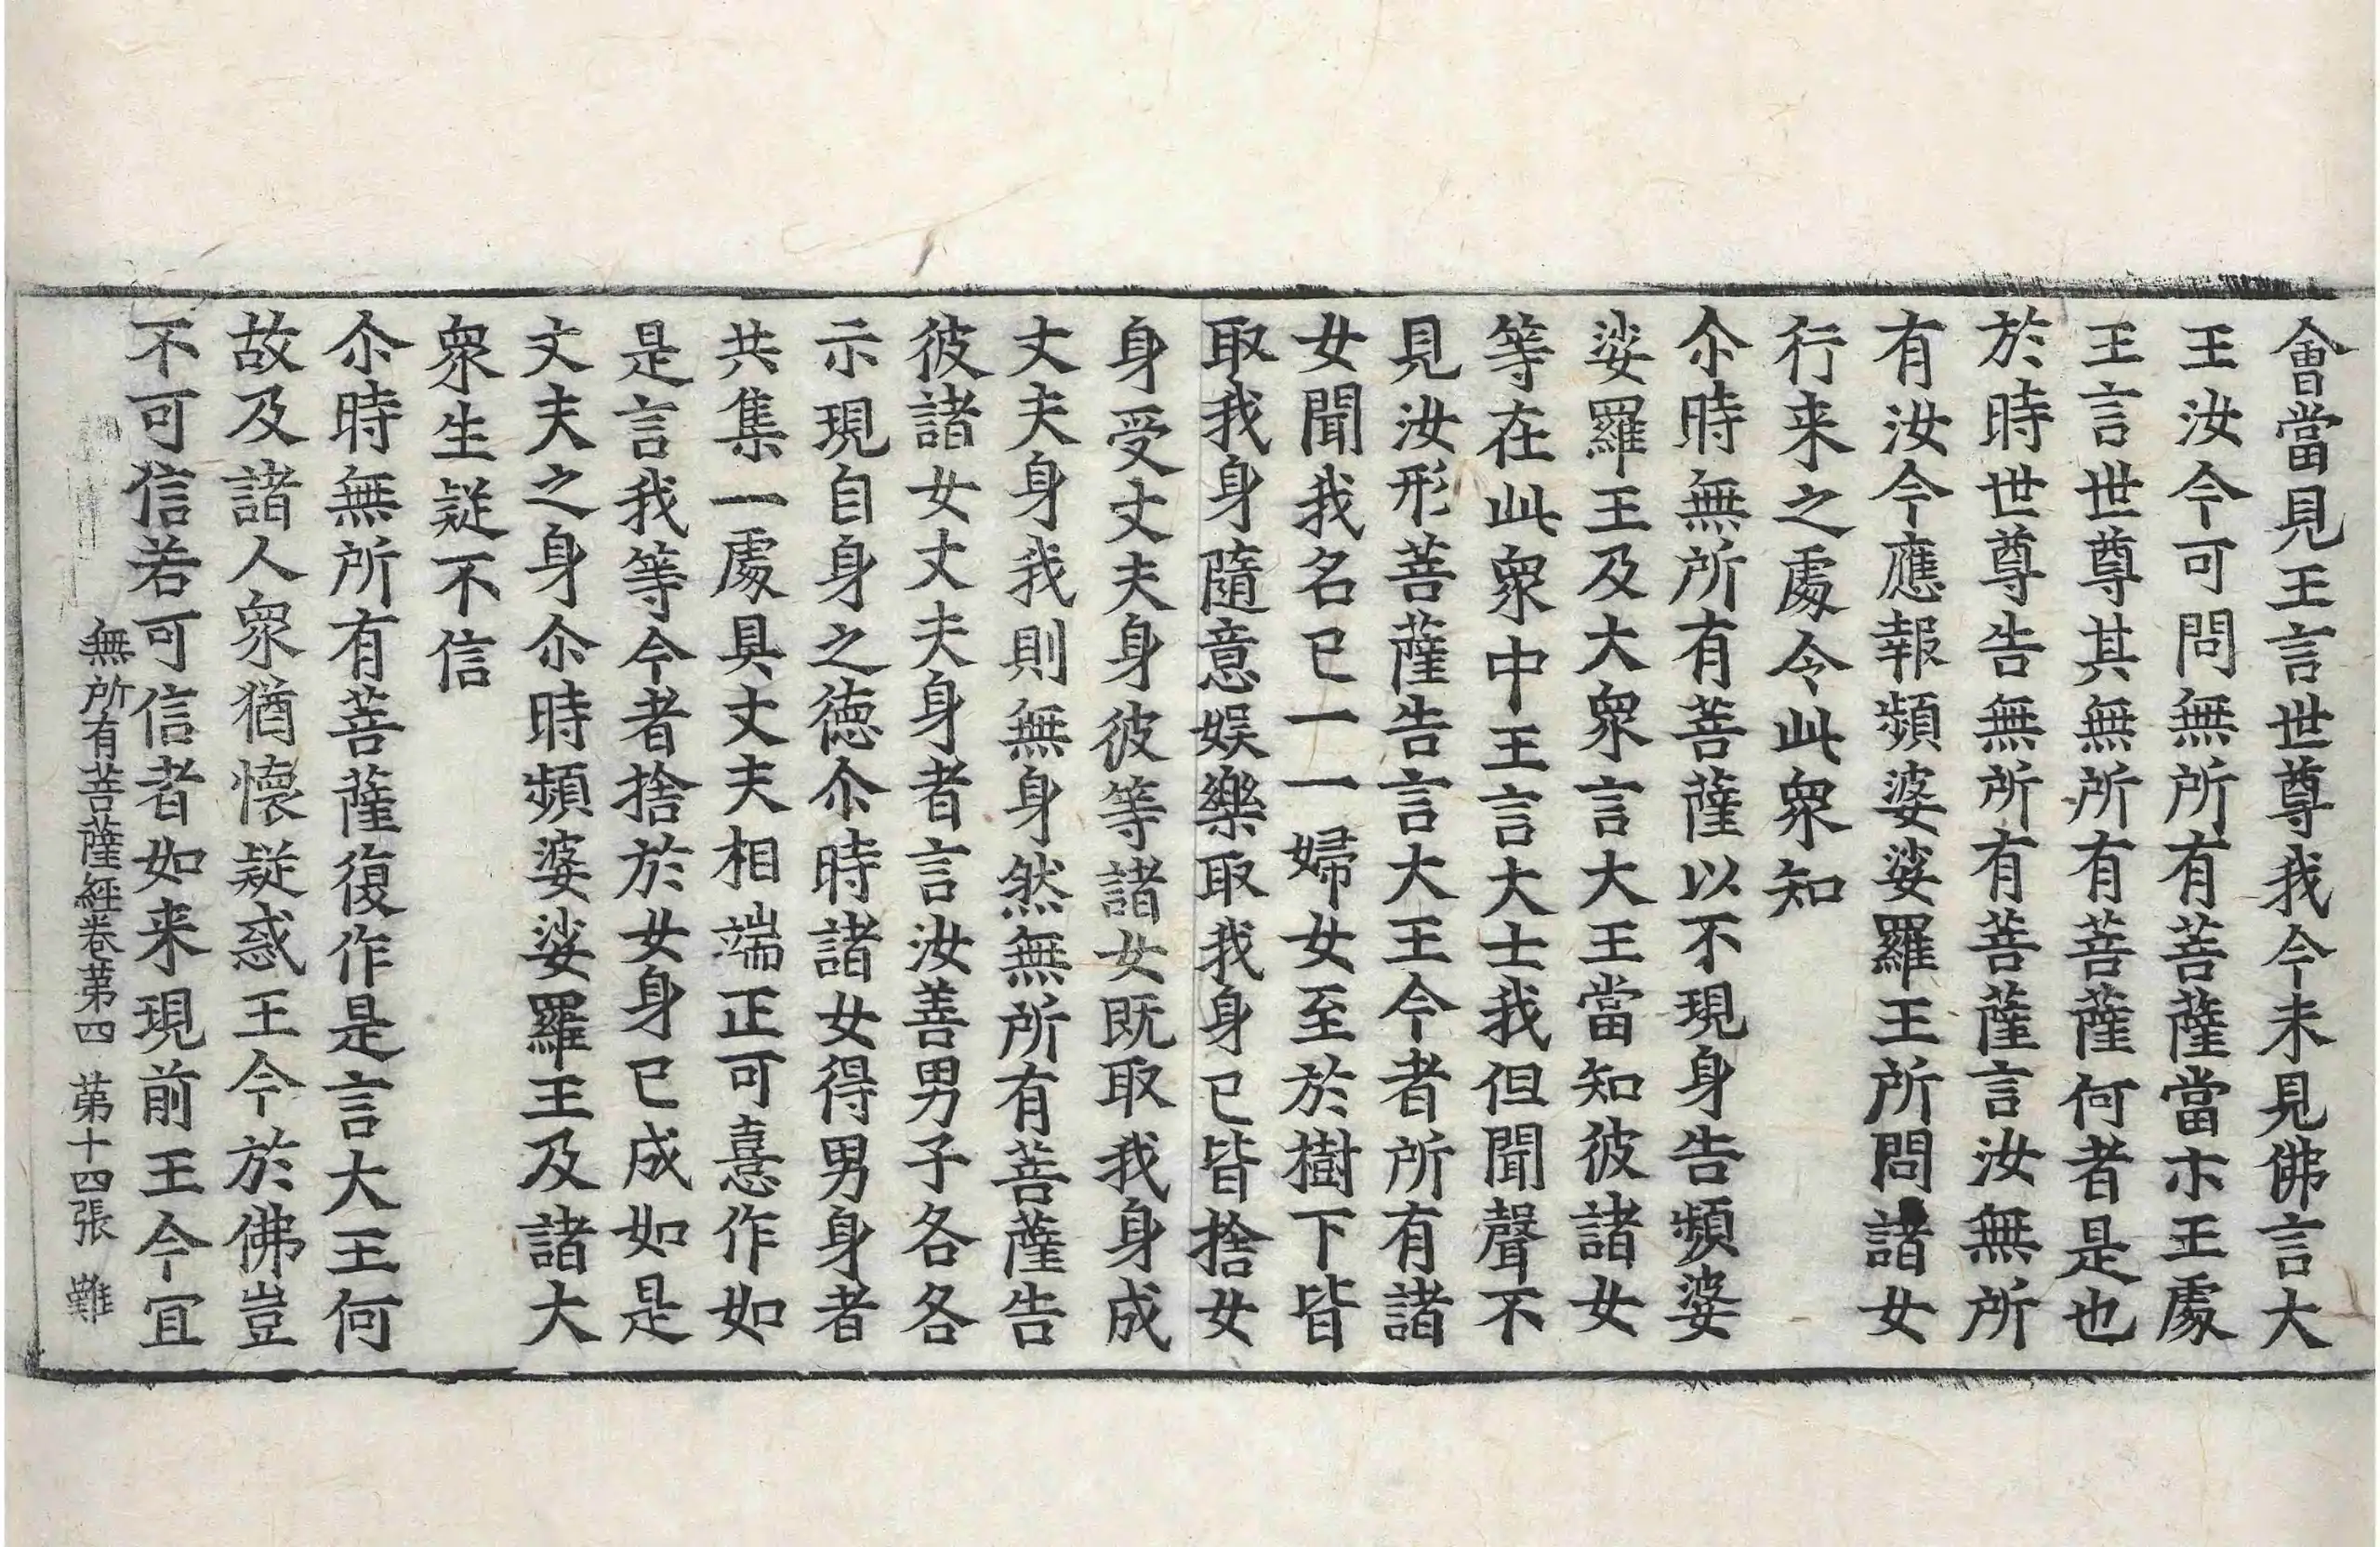 會當見王言世尊我今未見佛言大
王汝今可問無所有菩薩當示王處
王言世尊其無所有菩薩何者是也
於時世尊告無所有菩薩言汝無所
有汝今應報頻婆娑羅王所問諸女
行来之處令此衆知
尒時無所有菩薩以不現身告頻婆
娑羅王及大衆言大王當知彼諸女
等在此衆中王言大士我但聞聲不
見汝形菩薩告言大王今者所有諸
女聞我名已一一婦女至於樹下皆
取我身隨意娛樂取我身已皆捨女
身受丈夫身彼等諸女既取我身成
丈夫身我則無身然無所有菩薩告
彼諸女丈夫身者言汝善男子各各
示現自身之德尒時諸女得男身者
共集一處具丈夫相端正可憙作如
是言我等今者捨於女身已成如是
丈夫之身尒時頻婆娑羅王及諸大
衆生疑不信
尒時無所有菩薩復作是言大王何
故及諸人衆猶懷疑惑王今於佛豈
不可信若可信者如来現前王今宜
無所有菩薩經卷第四 第十四張 難